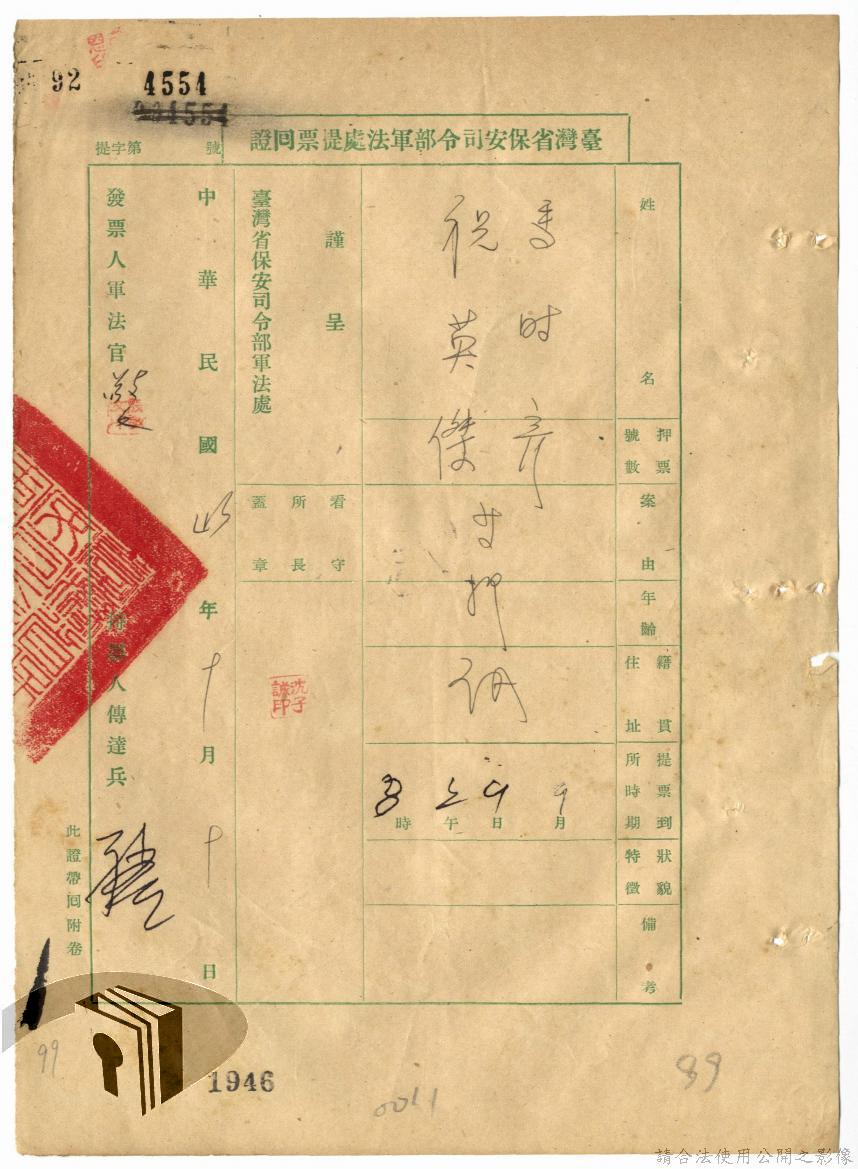 92
4554
臺灣省保安司令部軍法處提票回證
提字第 號
姓名
馬时彦
祝英傑
押票號數
案由
寄押
年齡
籍貫住址
提票到所時期
月 日 午 時
狀貌特徵
備考
謹呈
臺灣省保安司令部軍法處
看守所所長蓋章
沈子誠印
中華民國 年十月十日
發票人軍法官
持票人傳達兵
此證帶回附卷
99
1946
0011
89
請合法使用公開之影像